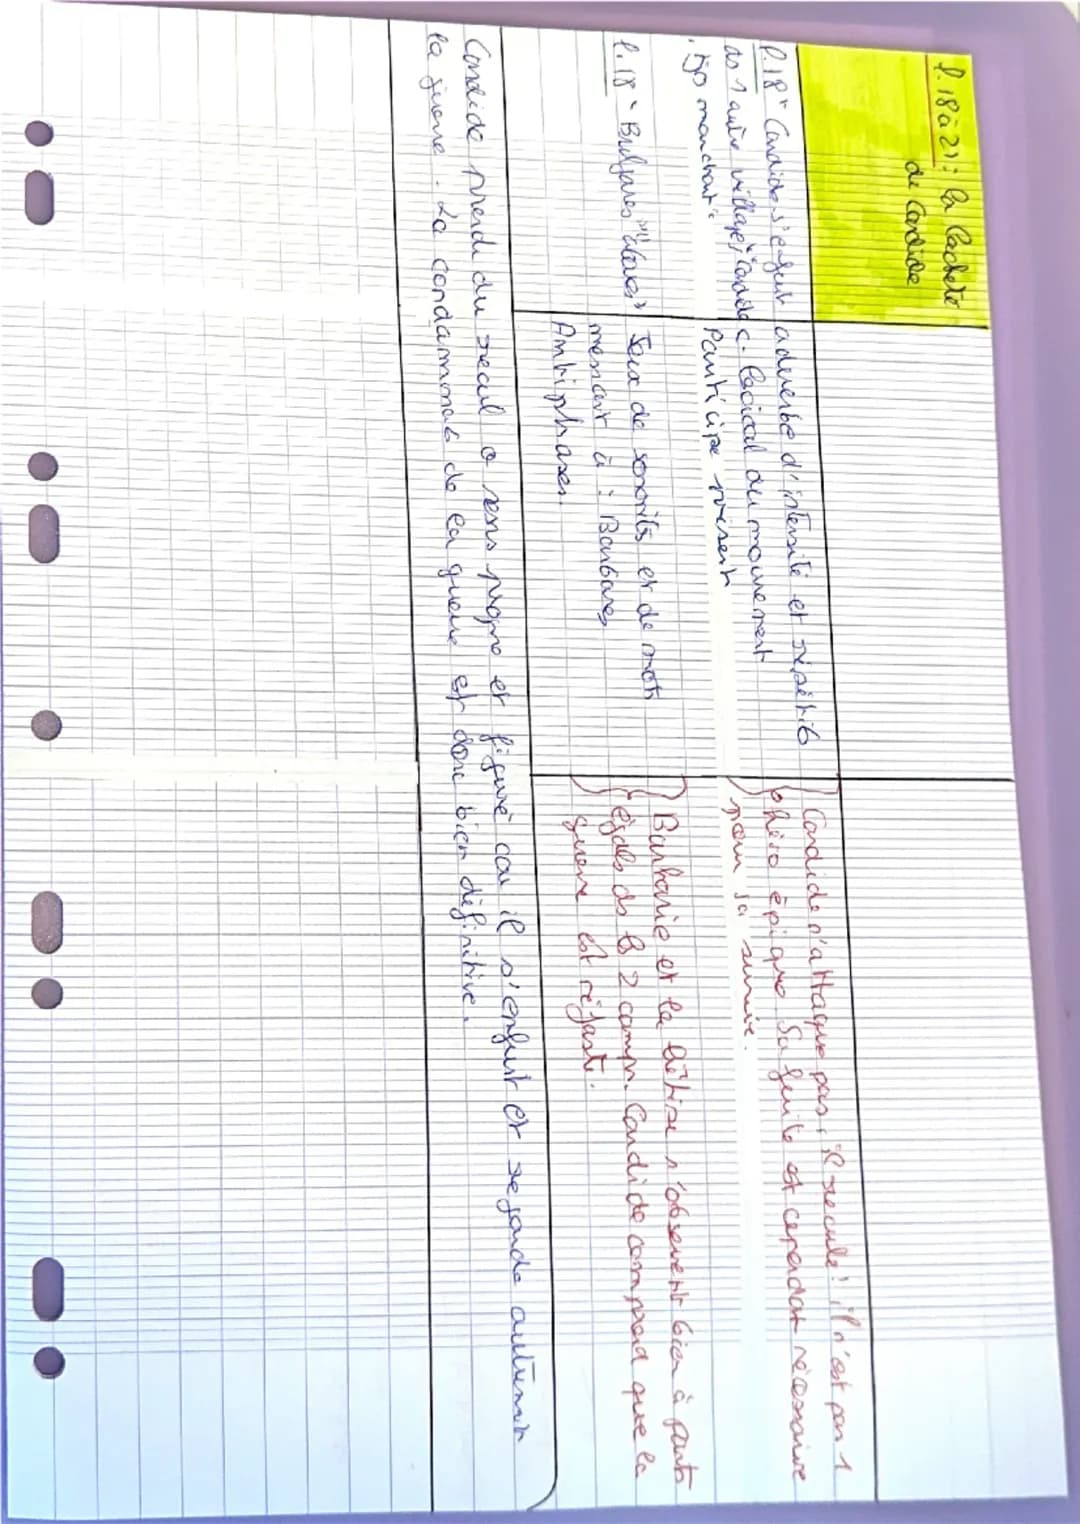 l.18 à 21: la lâcheté
de Candide
l.18 "Candide s'enfuit
ds 1 autre village, "Candide
"tjo marchant"
adverbe d'intensité et répétit°
c. lexical du mouvement
Participe présent
Candide n'attaque pas, il recule! il n'est pas 1
héro épique. Sa fuite est cependant nécessaire
pour sa survie.
l.18 "Bulgares" "Abares"
Jeux de sonorités et de mots
menant à : Barbares
Antiphrases.
Barbarie et la bêtise s'observent bien à parts
égales ds ls 2 camps. Candide comprend que la
guerre est néfaste.
Candide prend du recul o sens propre et figuré car il s'enfuit et regarde autrement
la guerre. La condamnat° de la guerre est donc bien définitive.